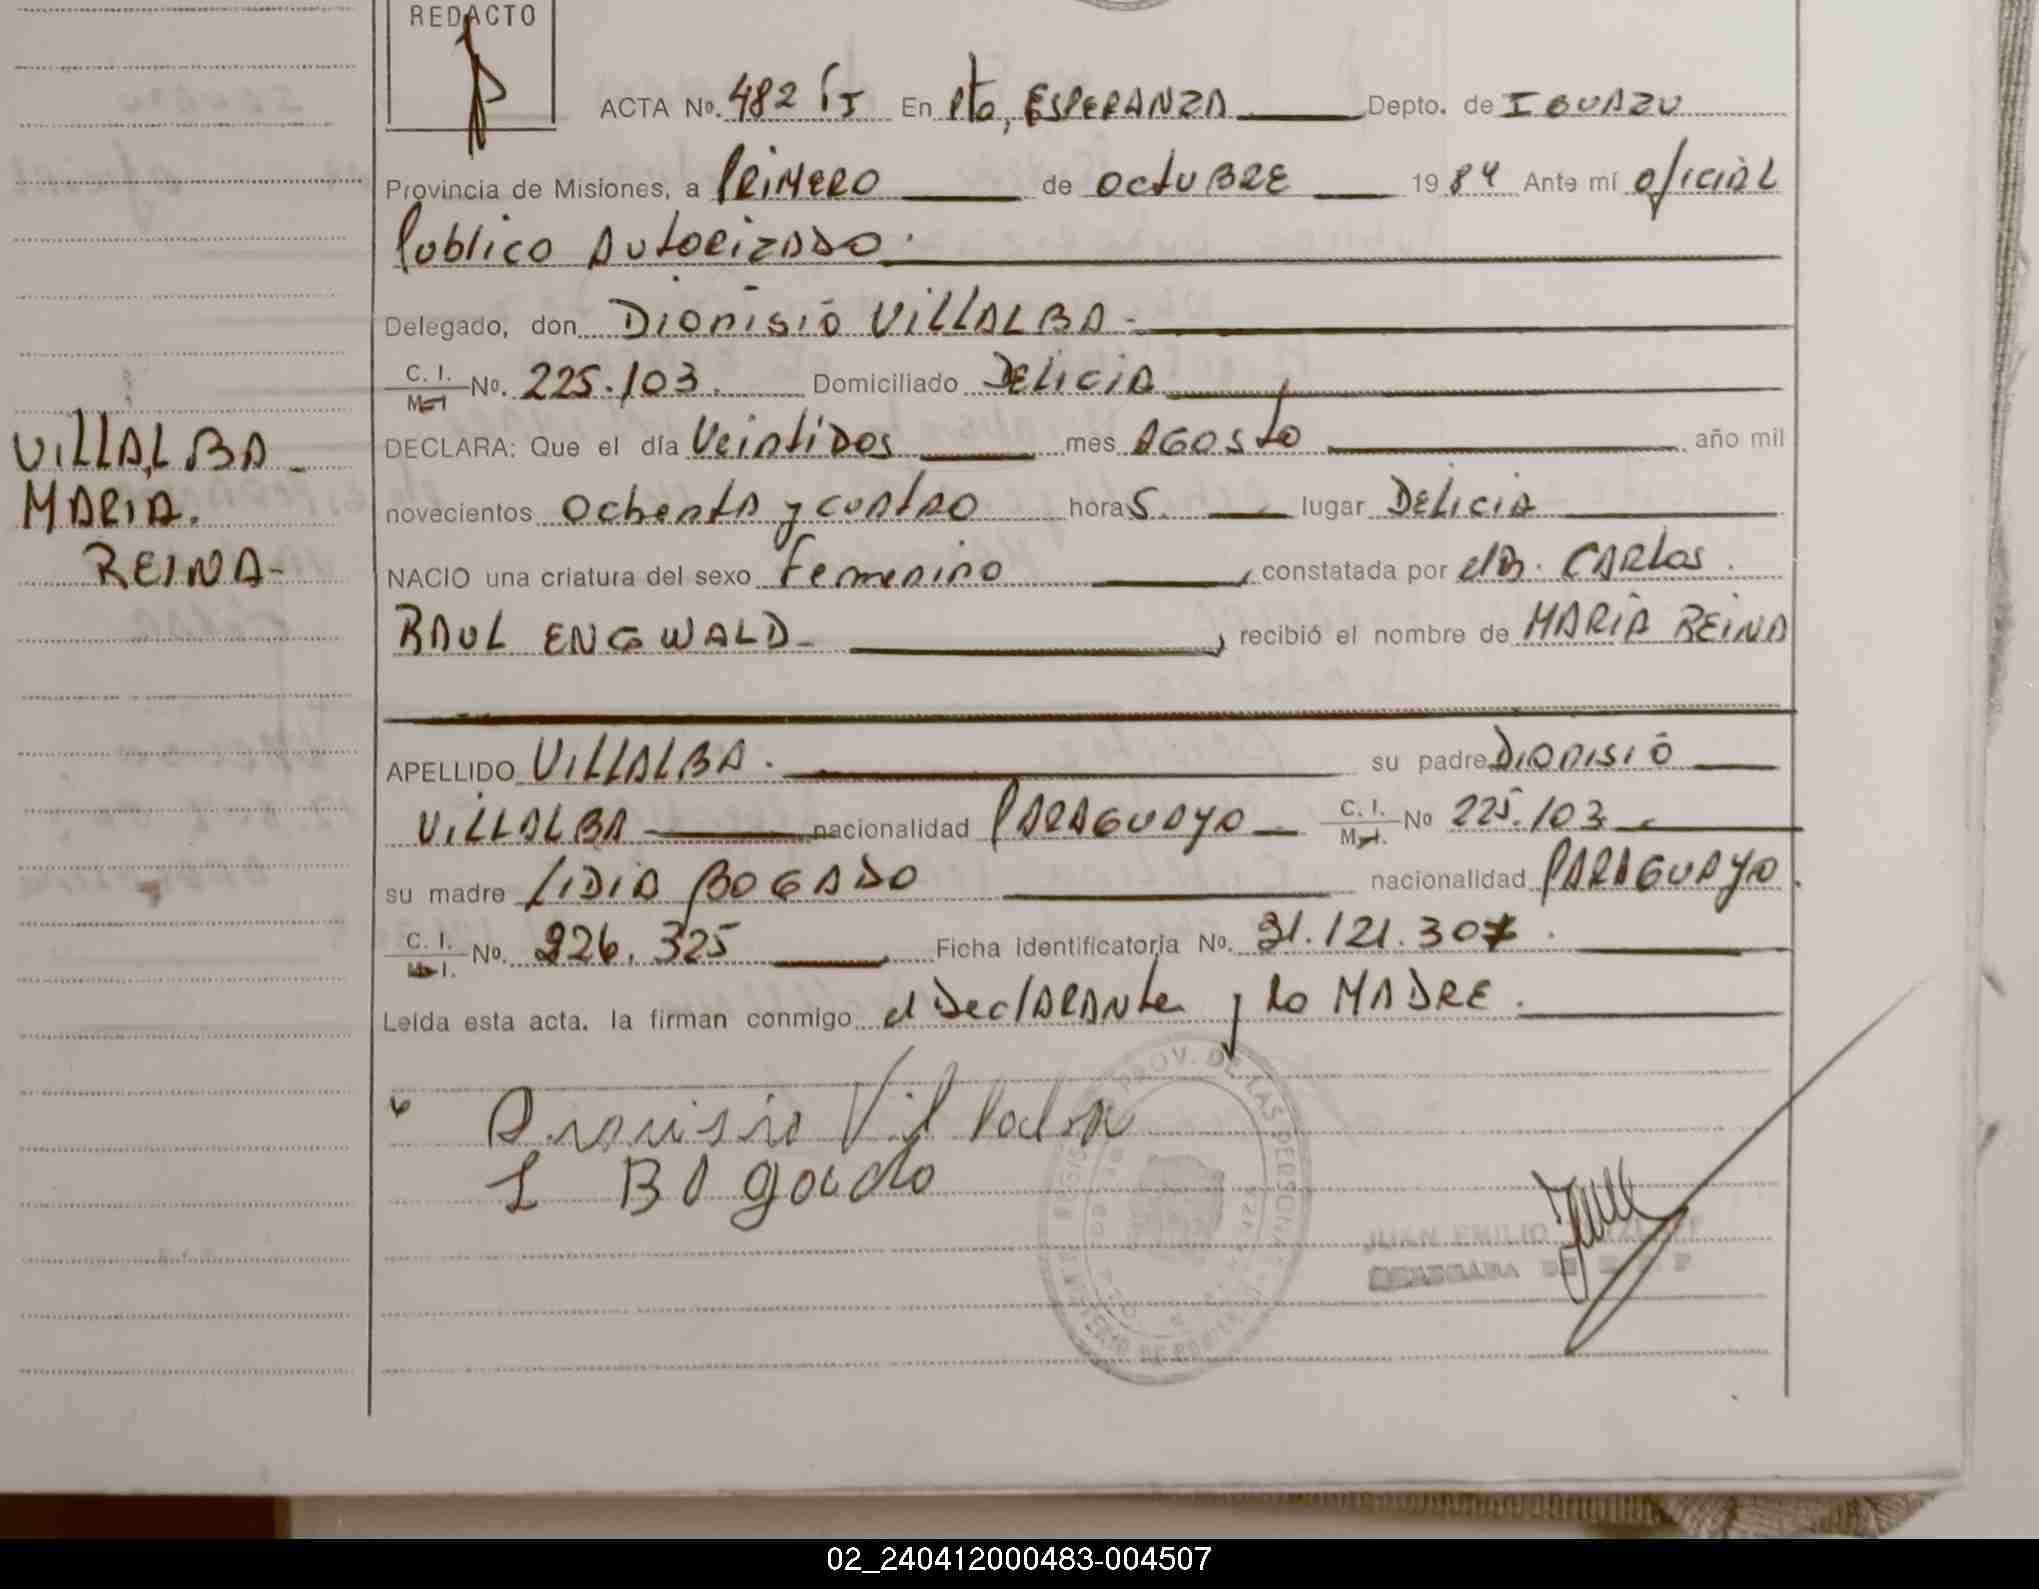 REDACTO
ACTA Nº. 482 En Pto, ESPERANZA Depto. de IGUAZU
Provincia de Misiones, a PRIMERO de OCTUBRE 1984 Ante mí oficial
Publico AUTORIZADO.
Delegado, don Dionisio VILLALBA -
C. I. Nº. 225.103. Domiciliado DELICIA
M. I.
DECLARA: Que el día Veintidos mes AGOSTO año mil
VILLALBA -
novecientos ochenta y cuatro hora 5. lugar DELICIA
MARIA.
REINA-
NACIO una criatura del sexo Femenino, constatada por el Dr. CARLOS
RAUL ENGWALD -, recibió el nombre de MARIA REINA
APELLIDO VILLALBA. su padre DIONISIO
VILLALBA nacionalidad PARAGUAYO C. I. Nº 225.103
M. I.
su madre LIDIA BOGADO nacionalidad PARAGUAYO
C. I. Nº. 226.325 Ficha identificatoria Nº. 31.121.307.
M. I.
Leída esta acta, la firman conmigo el DeclARANte y la MADRE.
Dionisio Villalba
L Bogado
PROV. DE LAS PERSONAS
JUAN EMILIO
02_240412000483-004507